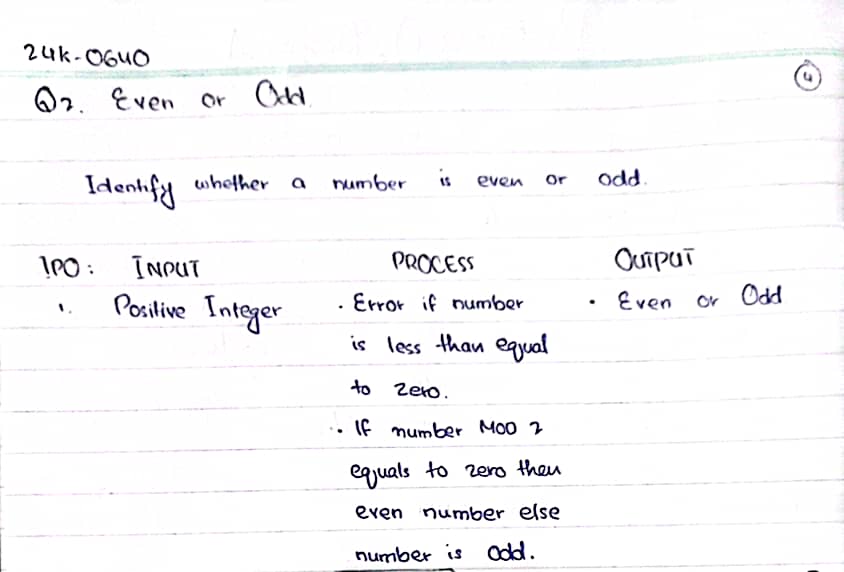 24K-0640
4
Q2. Even or Odd
Identify whether a number is even or odd.
IPO: INPUT PROCESS OUTPUT
1. Positive Integer · Error if number · Even or Odd
is less than equal
to zero.
· If number MOD 2
equals to zero then
even number else
number is odd.